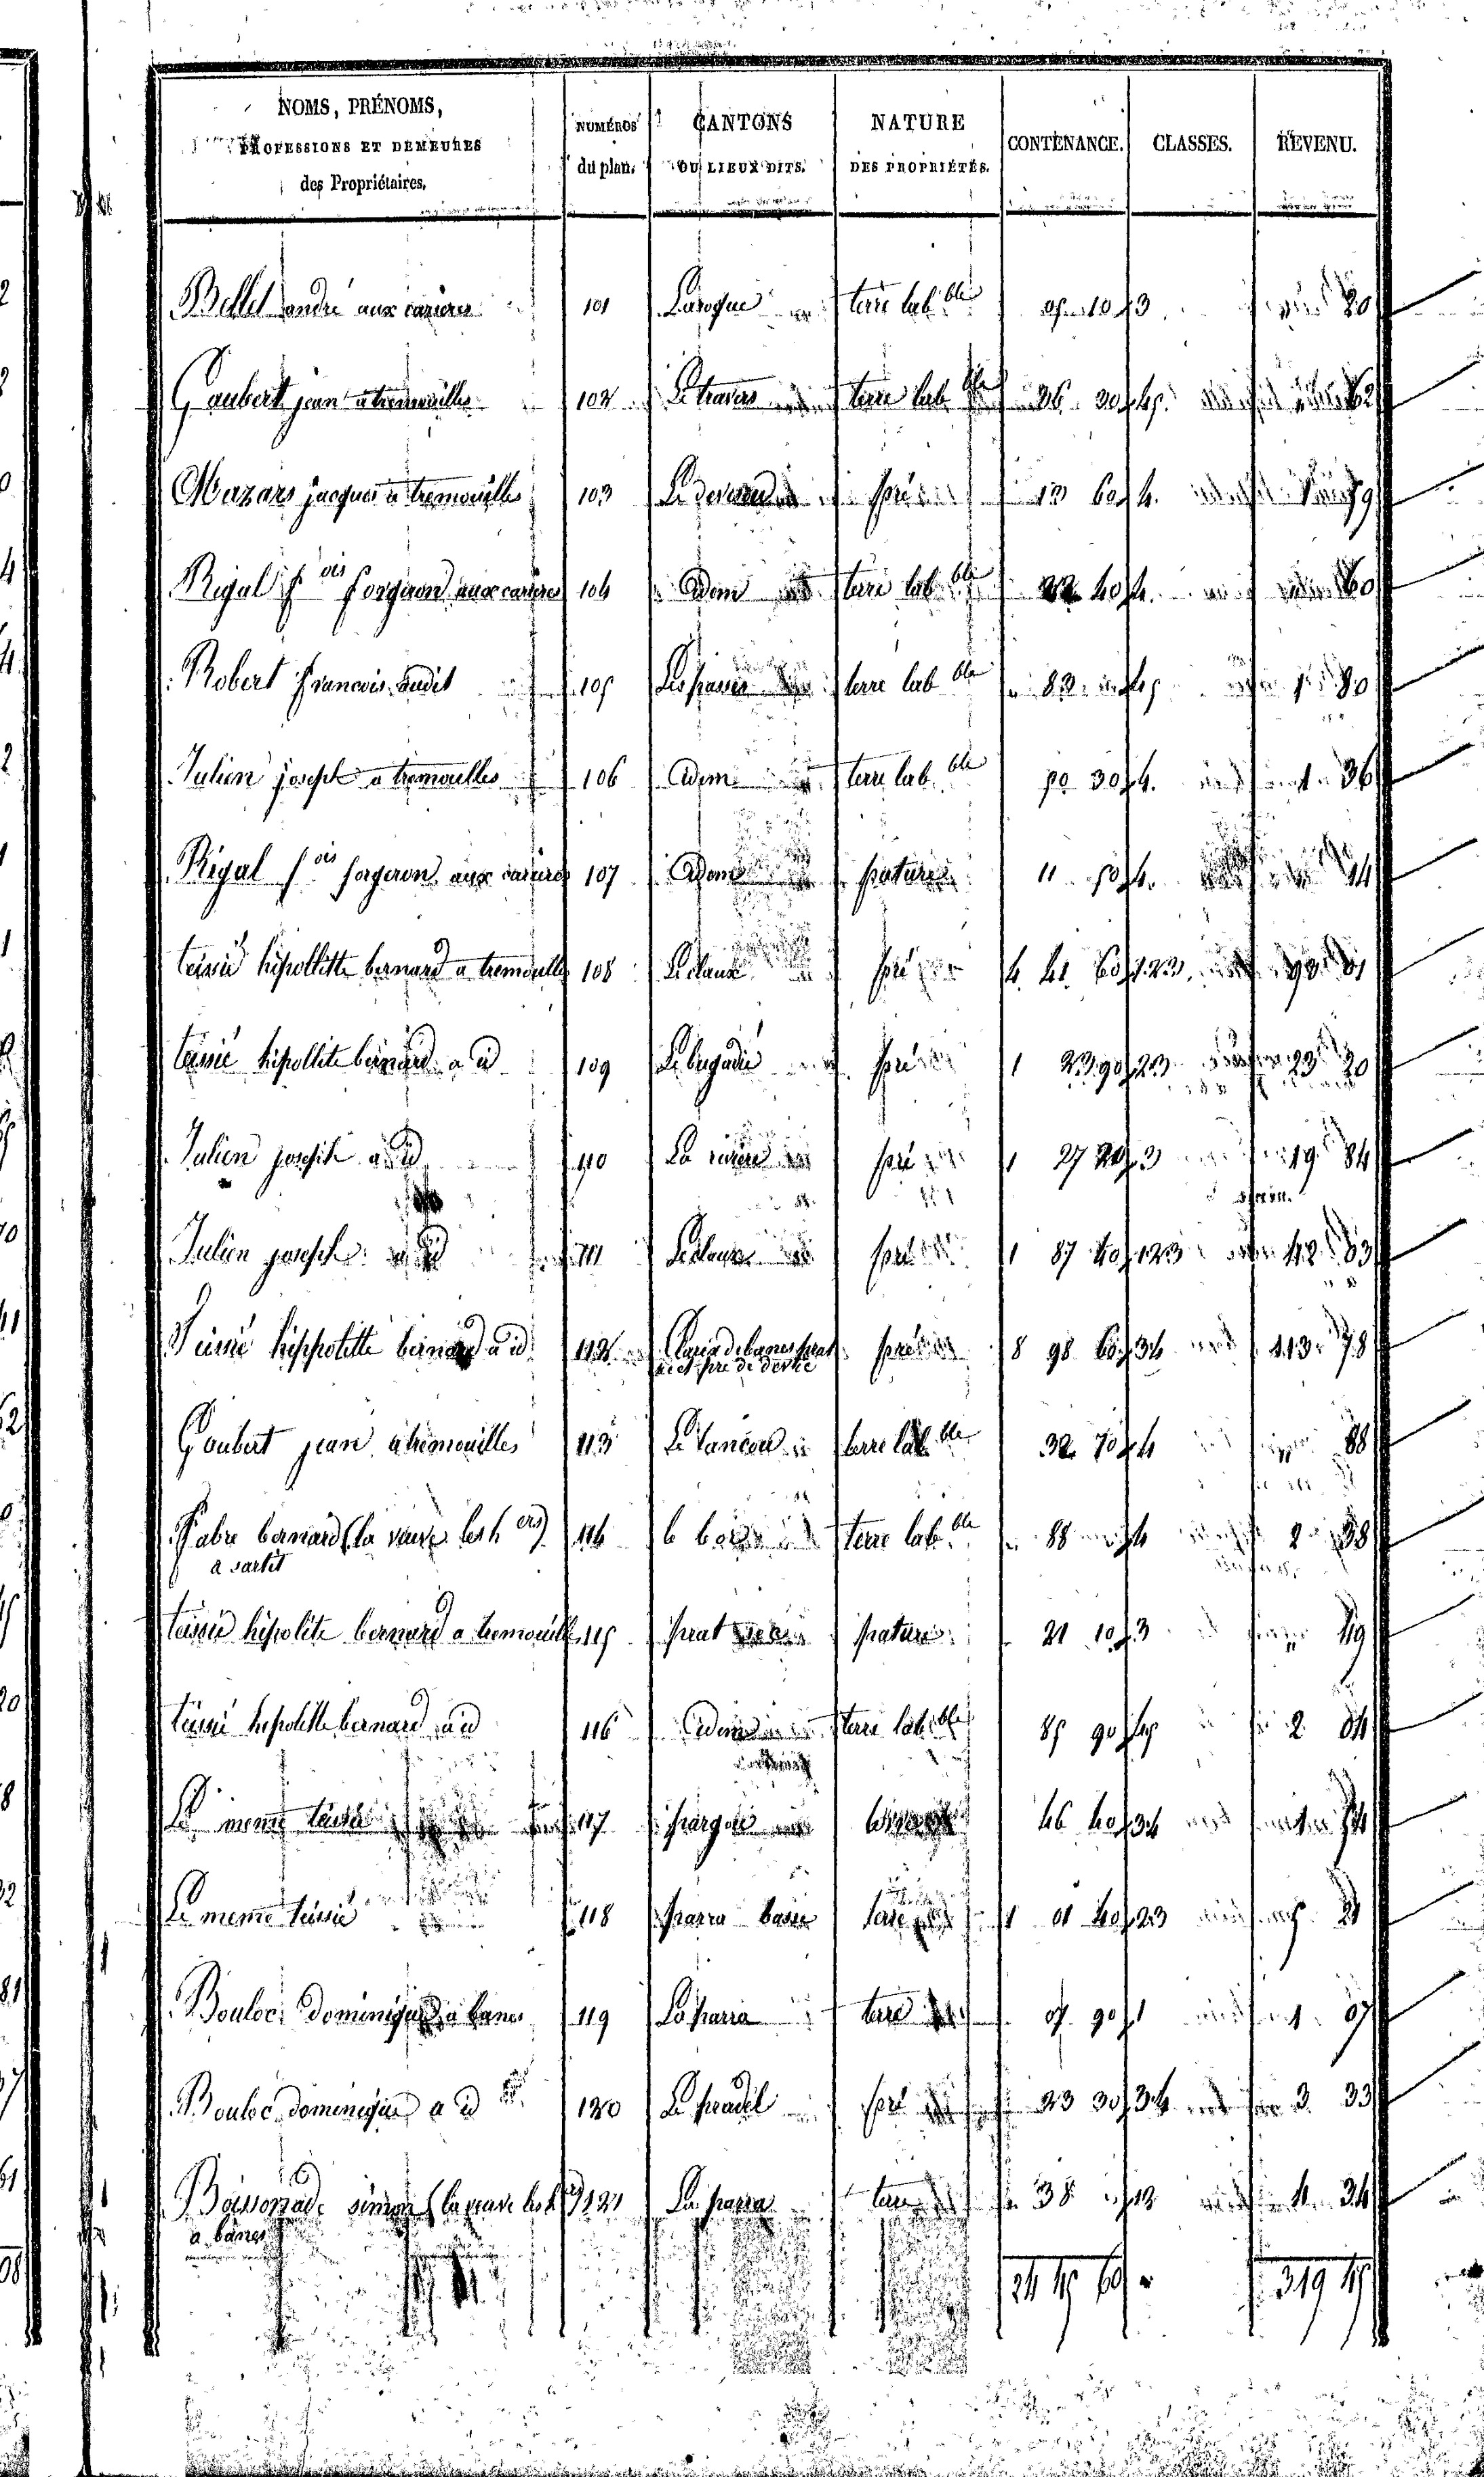 NOMS, PRÉNOMS, PROFESSIONS ET DEMEURES des Propriétaires. NUMÉROS du plan. CANTONS OU LIEUX DITS. NATURE DES PROPRIÉTÉS. CONTENANCE. CLASSES. REVENU.
andré aux carieres 101 Laroque terre lab.ble 10 3 80
Gaubert jean a tremouilles 102 Le travers terre lab.ble 36 30 45 62
Mazars jacques a tremouilles 103 pré 13 60 4 79
Rigal fois forgeron aux carieres 104 idem terre lab.ble 22 40 4 60
Robert francois audit 105 terre lab.ble 83 45 1 80
Julien joseph a tremouilles 106 idem terre lab.ble 50 30 4. 1 36
Rigal fois forgeron aux carieres 107 idem pature 11 50 4. 14
teissié hipollitte bernard a tremouilles 108 Le claux pré 4 41 60 123 93 01
teissié hipollite bernard a id 109 Le bugadié pré 1 23 90 23 23 20
Julien joseph a id 110 La riviere pré 1 27 20 3 19 84
Julien joseph a id 111 Le claux pré 1 87 40 123 42 03
Teissié hippolitte bernard a id 112 pré 8 98 60 34 113 78
et pré de
Goubert jean a tremouilles 113 terre lab.ble 32 70 4 88
Fabre bernard (la veuve les hers) 114 terre lab.ble 88 4 2 38
a sartit
teissié hipolite bernard a tremouille 115 prat pature 21 10 3 49
teissié hipolitte bernard a id 116 idem terre lab.ble 85 90 45 2 04
Le meme teissié 117 46 40 34 1 54
Le meme teissié 118 parra basse terre 1 01 40 23 5 21
Bouloc dominique a banes 119 La parra terre 07 90 1 1 07
Bouloc dominique a id 120 Le pradel pré 23 30 34 3 33
Boissonade simon (la veuve les hers) 121 La parra terre 38 12 4 34
a banes
24 45 60 319 45